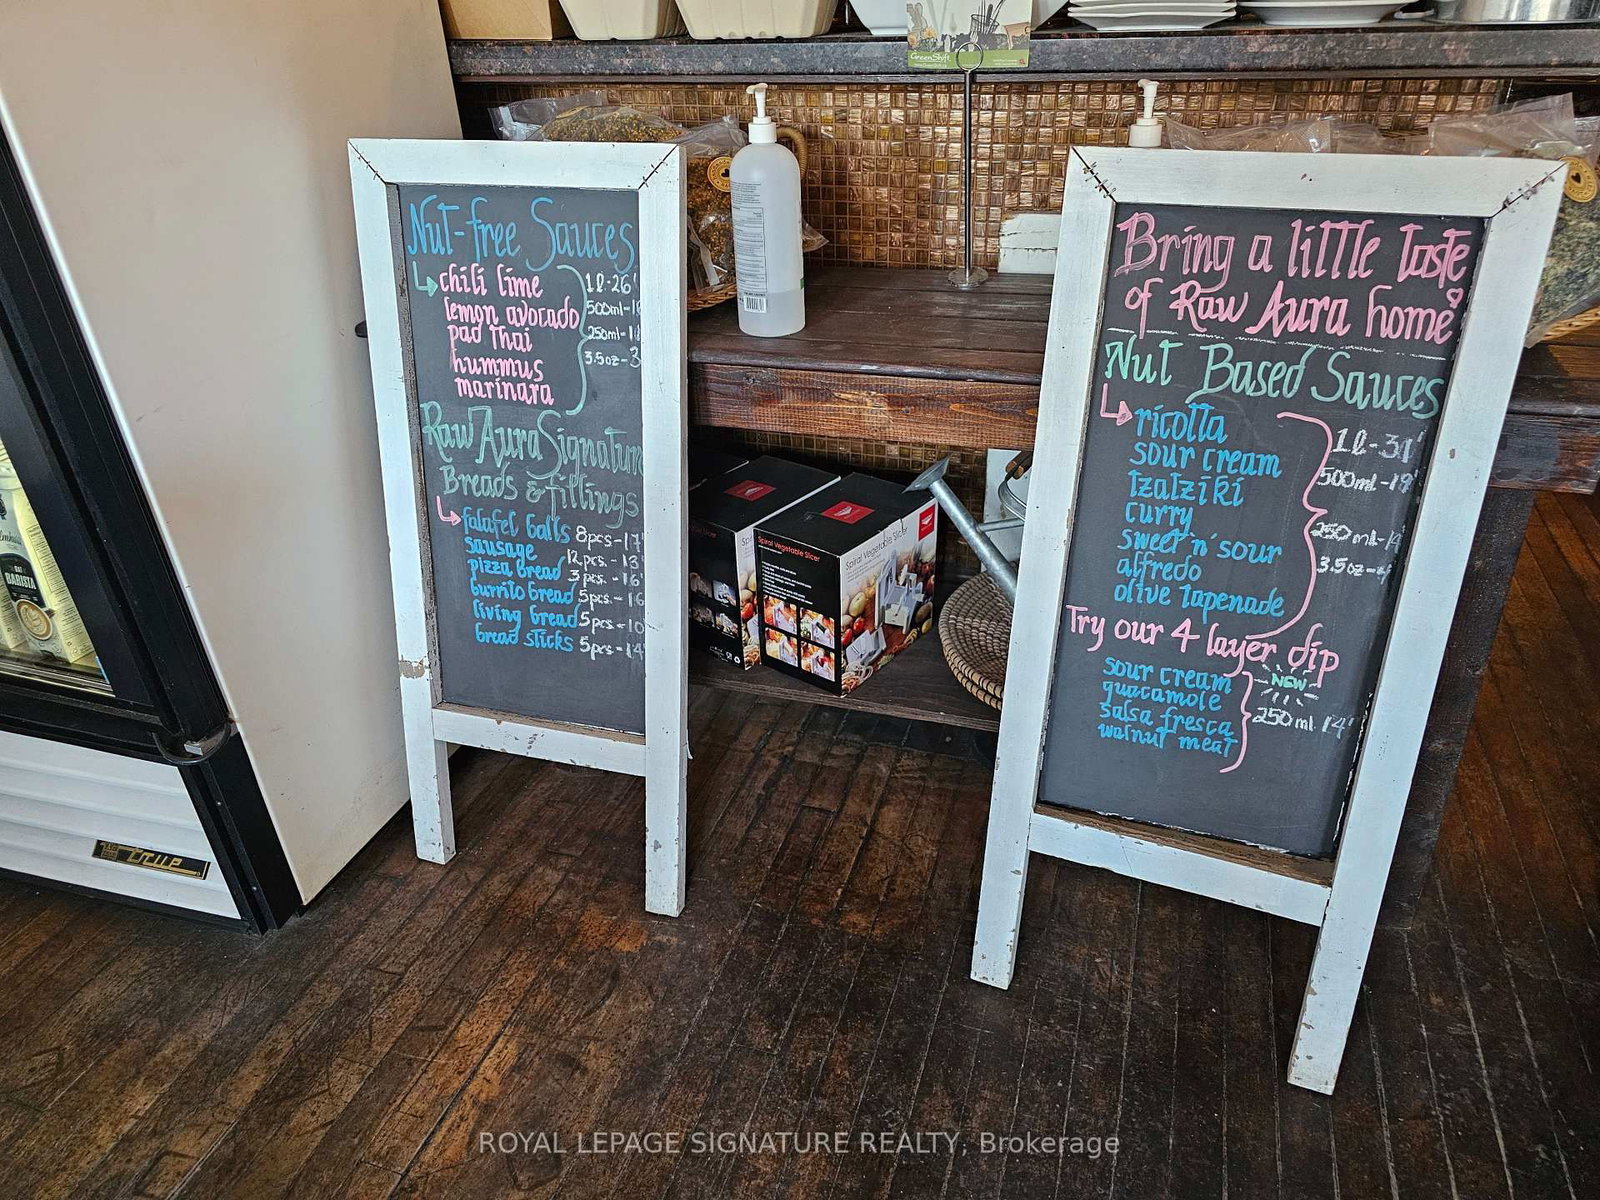 GreenShift
Nut-free Sauces
chili lime
lemon avocado
pad Thai
hummus
marinara
1l-26
500ml-1
250ml-1
3.5oz-3
Raw Aura Signature
Breads & fillings
falafel balls 8pcs-17
sausage 12pcs.-13
pizza bread 3pcs.-16
burrito bread 5pcs.-16
living bread 5pcs-10
bread sticks 5pcs-14
Spiral Vegetable Slicer
Spiral Vegetable Slicer
Bring a little taste
of Raw Aura home
Nut Based Sauces
ricotta
sour cream
tzatziki
curry
sweet 'n' sour
alfredo
olive tapenade
1l-31
500ml-19
250ml-1
3.5oz-4
Try our 4 layer dip
sour cream
guacamole
salsa fresca
walnut meat
NEW
250ml 14
BARISTA
true
ROYAL LEPAGE SIGNATURE REALTY, Brokerage